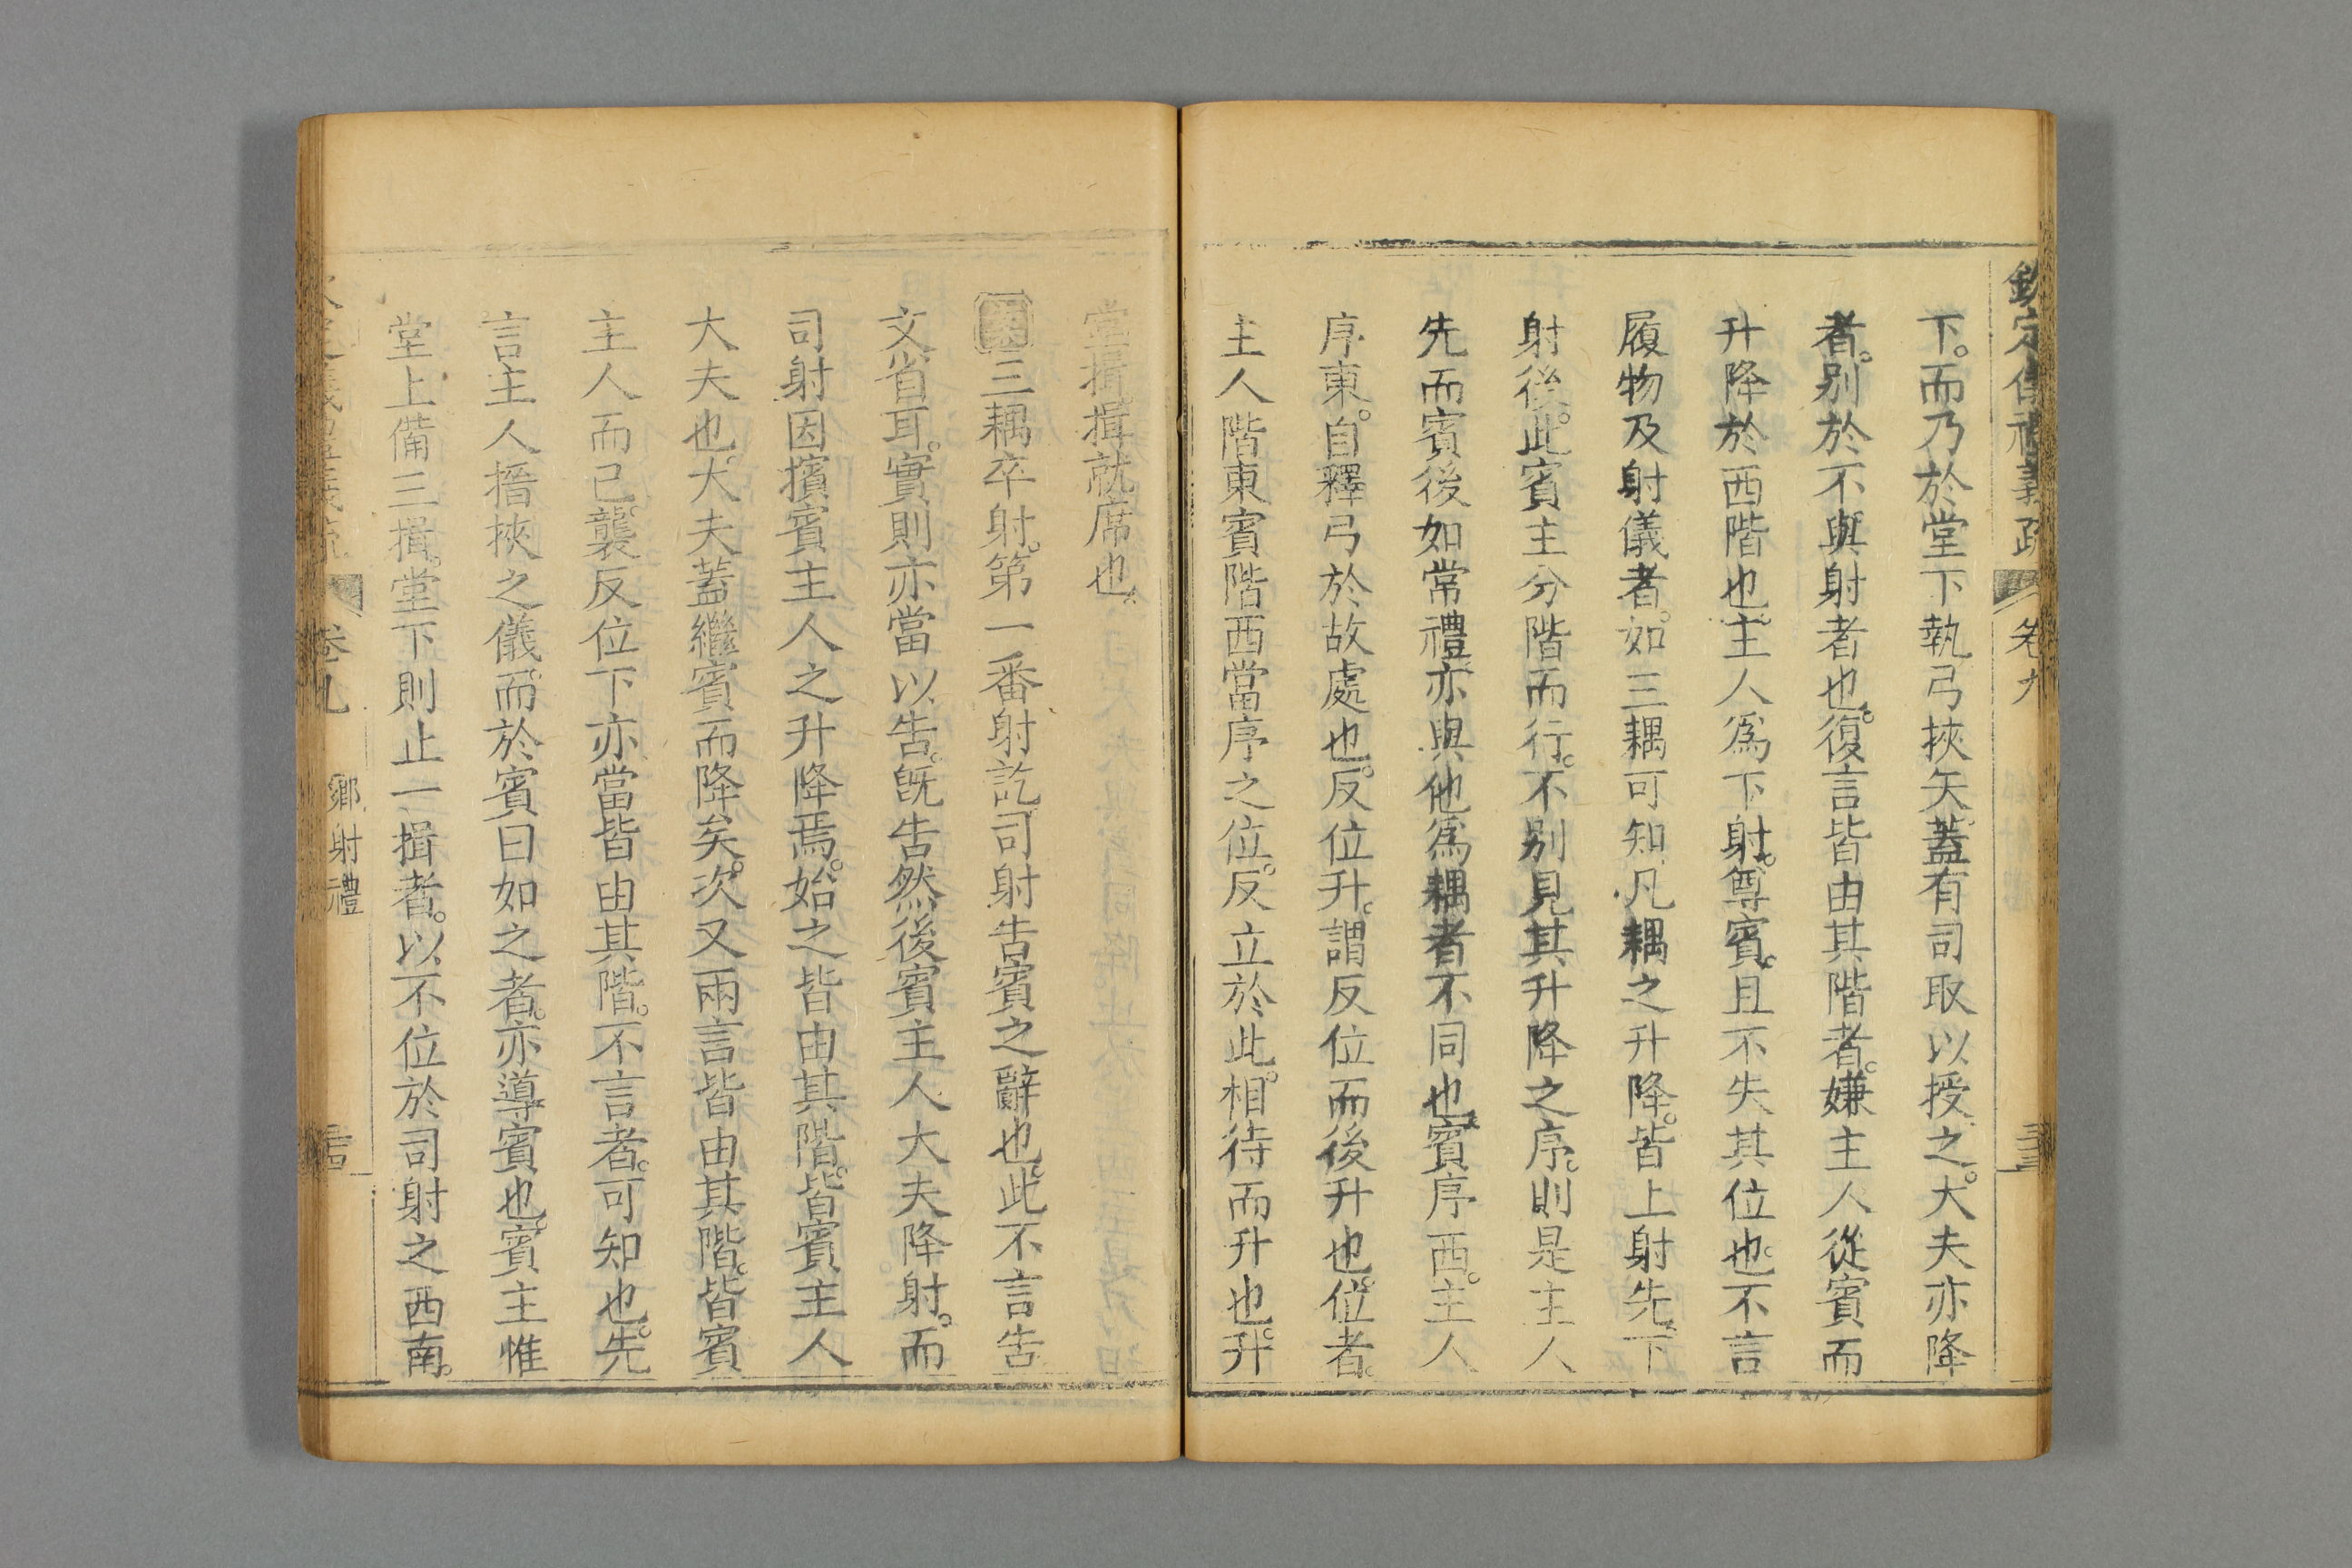 欽定儀禮義疏 卷九
下。而乃於堂下執弓挾矢。蓋有司取以授之。大夫亦降
者。别於不與射者也。復言皆由其階者。嫌主人從賓而
升降於西階也。主人爲下射。尊賓。且不失其位也。不言
履物及射儀者。如三耦可知。凡耦之升降。皆上射先。下
射後。此賓主分階而行。不别見其升降之序。則是主人
先而賓後如常禮。亦與他爲耦者不同也。賓序西。主人
序東。自釋弓於故處也。反位升。謂反位而後升也。位者。
主人階東賓階西當序之位。反立於此。相待而升也。升
堂揖揖就席也。
三耦卒射。第一番射訖。司射告賓之辭也。此不言告
文省耳。實則亦當以告。既告然後賓主人大夫降射。而
司射因擯賓主人之升降焉。始之皆由其階。皆賓主人
大夫也。大夫蓋繼賓而降矣。次又兩言皆由其階。皆賓
主人而已。襲反位下亦當皆由其階。不言者。可知也。先
言主人搢挾之儀。而於賓曰如之者。亦導賓也。賓主惟
堂上備三揖。堂下則止一揖者。以不位於司射之西南。
卷九 鄉射禮